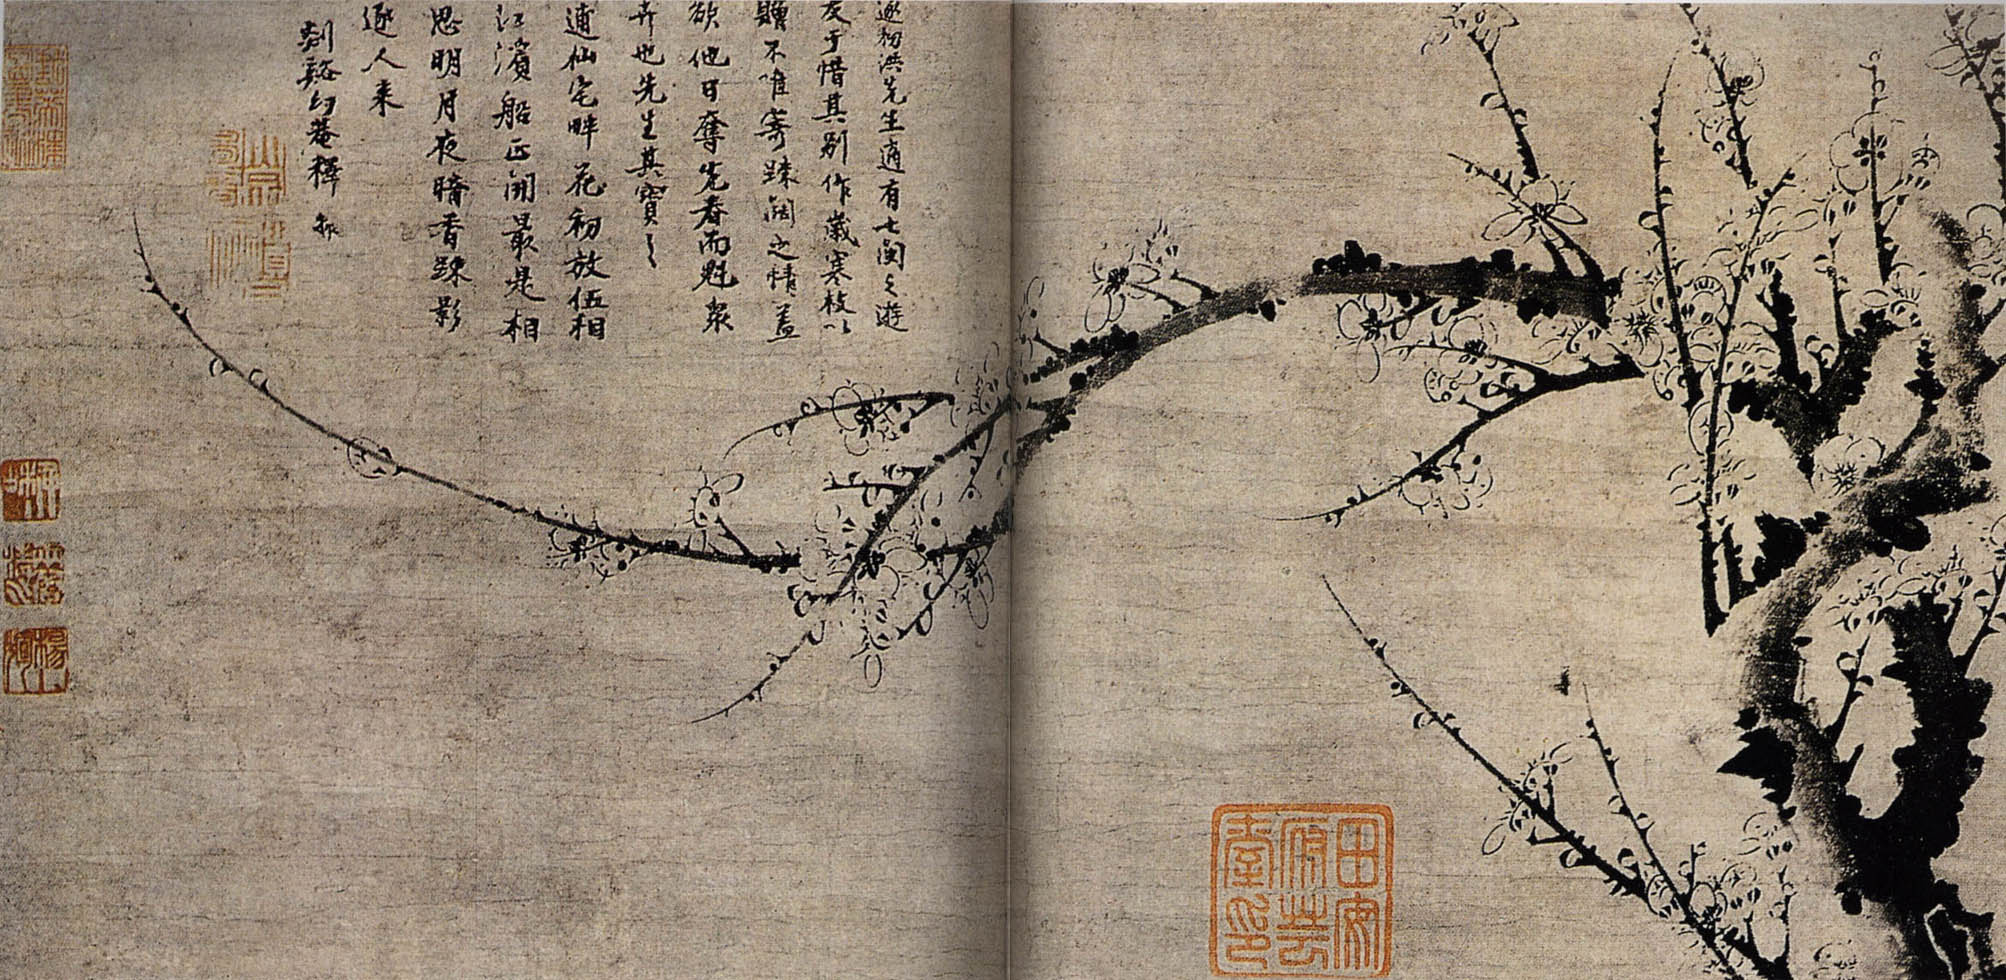 遂初洪先生適有七閩之遊
友于惜其别作歲寒枝以
贈不唯寄踈闊之情蓋
欲他日奪先春而魁衆
卉也先生其寶〻
逋仙宅畔花初放伍相
江濱船正開最是相
思明月夜暗香踈影
逐人来
剡谿幻菴釋
田安
府芸
臺印